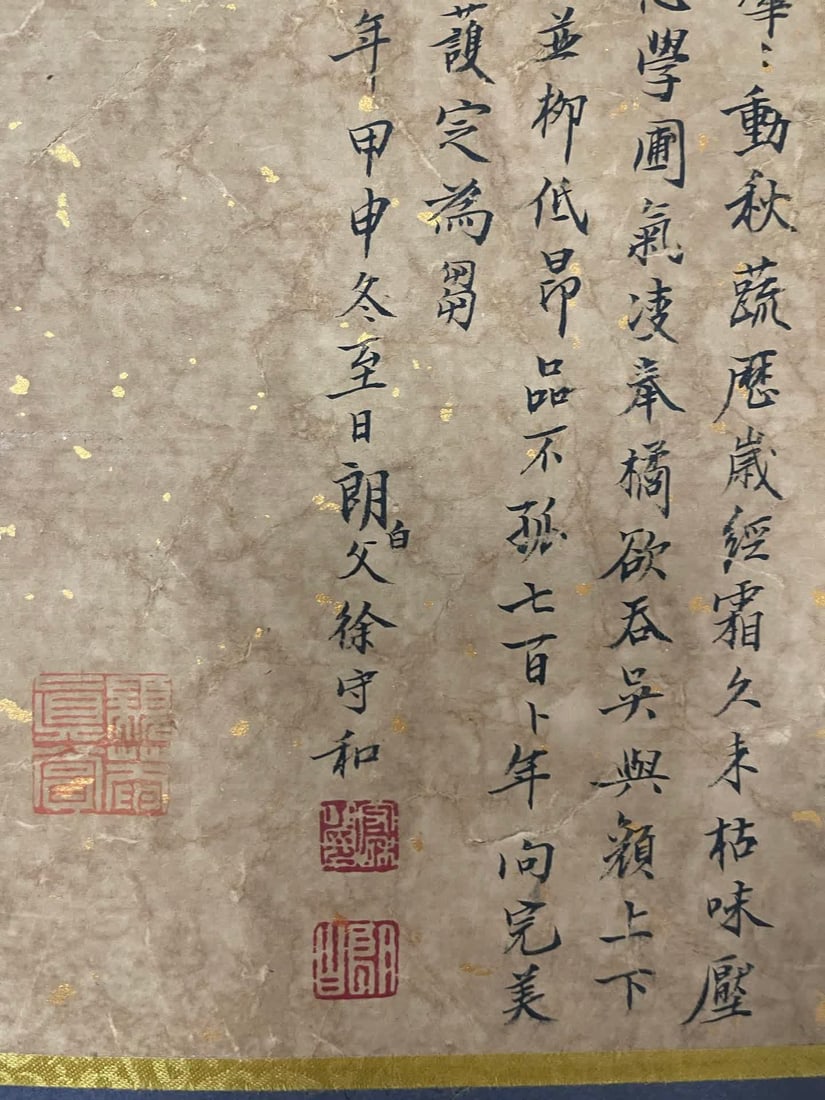 動秋蔬歷歲經霜久未枯味壓
學圃氣凌奉橘欲吞吳與顏上下
並柳低昂品不孤七百卜年向完美
護定為芻
年甲申冬至日朗白父徐守和